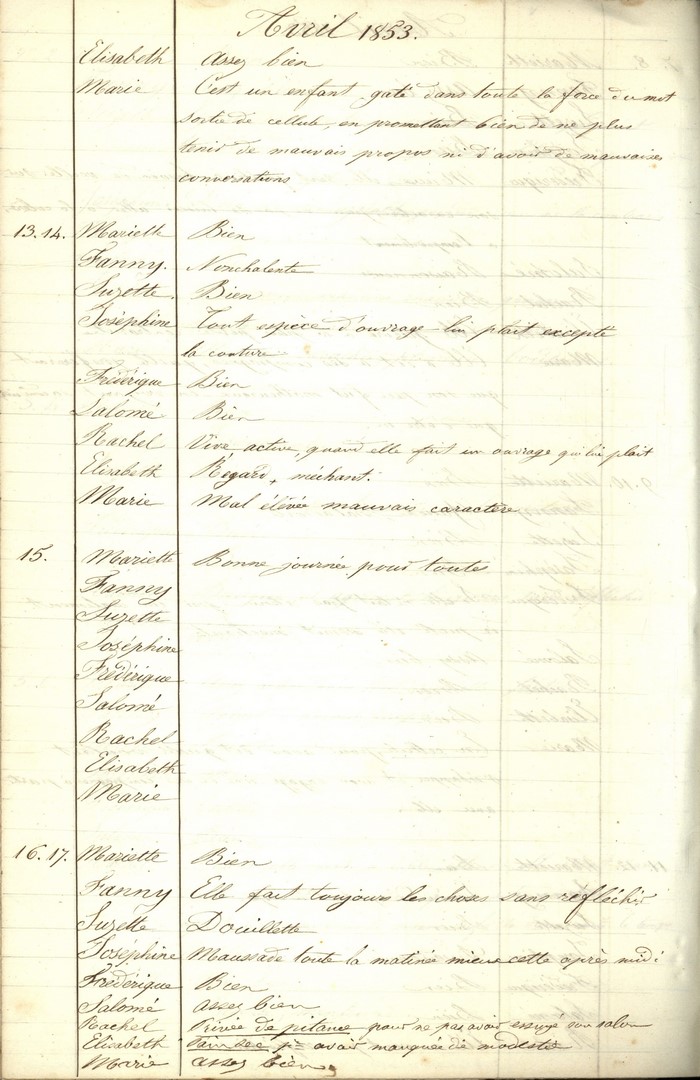 Avril 1853.
Elisabeth Assez bien
Marie C'est un enfant gaté dans toute la force du mot
sortie de cellule, en promettant bien de ne plus
tenir de mauvais propos ni d'avoir de mauvaises
conversations
13.14. Mariette Bien
Fanny. Nonchalente
Suzette. Bien
Joséphine Tout espèce d'ouvrage lui plait excepté
la couture
Frédérique Bien
Salomé Bien
Rachel Vive active, quand elle fait un ouvrage qui lui plait
Elisabeth Régard, méchant.
Marie Mal élévée mauvais caractère
15. Mariette Bonne journée pour toutes
Fanny
Suzette
Joséphine
Frédérique
Salomé
Rachel
Elisabeth
Marie
16.17. Mariette Bien
Fanny Elle fait toujours les choses sans refléchir
Suzette Douillette
Joséphine Maussade toute la matinée mieux cette après midi
Frédérique Bien
Salomé Assez bien
Rachel Privée de pitance pour ne pas avoir essuyé son salon
Elisabeth Pain sec pr avoir manquée de modestie
Marie Assez bien.